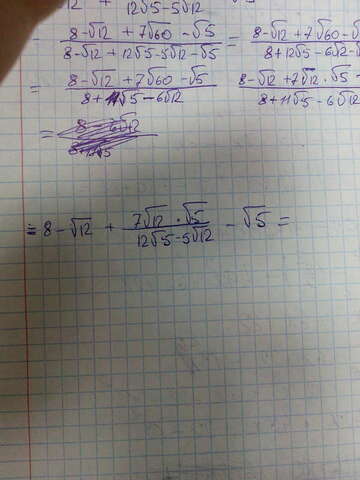 12√5-5√12
= (8-√12 + 7√60 - √5)/(8-√12 + 12√5-5√12-√5) = (8-√12 + 7√60 - √5)/(8+12√5-6√12-√5)
= (8-√12 + 7√60 - √5)/(8+11√5-6√12) (8-√12 + 7√12 · √5)/(8+11√5-6√12)
=
= 8-√12 + (7√12 · √5)/(12√5-5√12) - √5 =